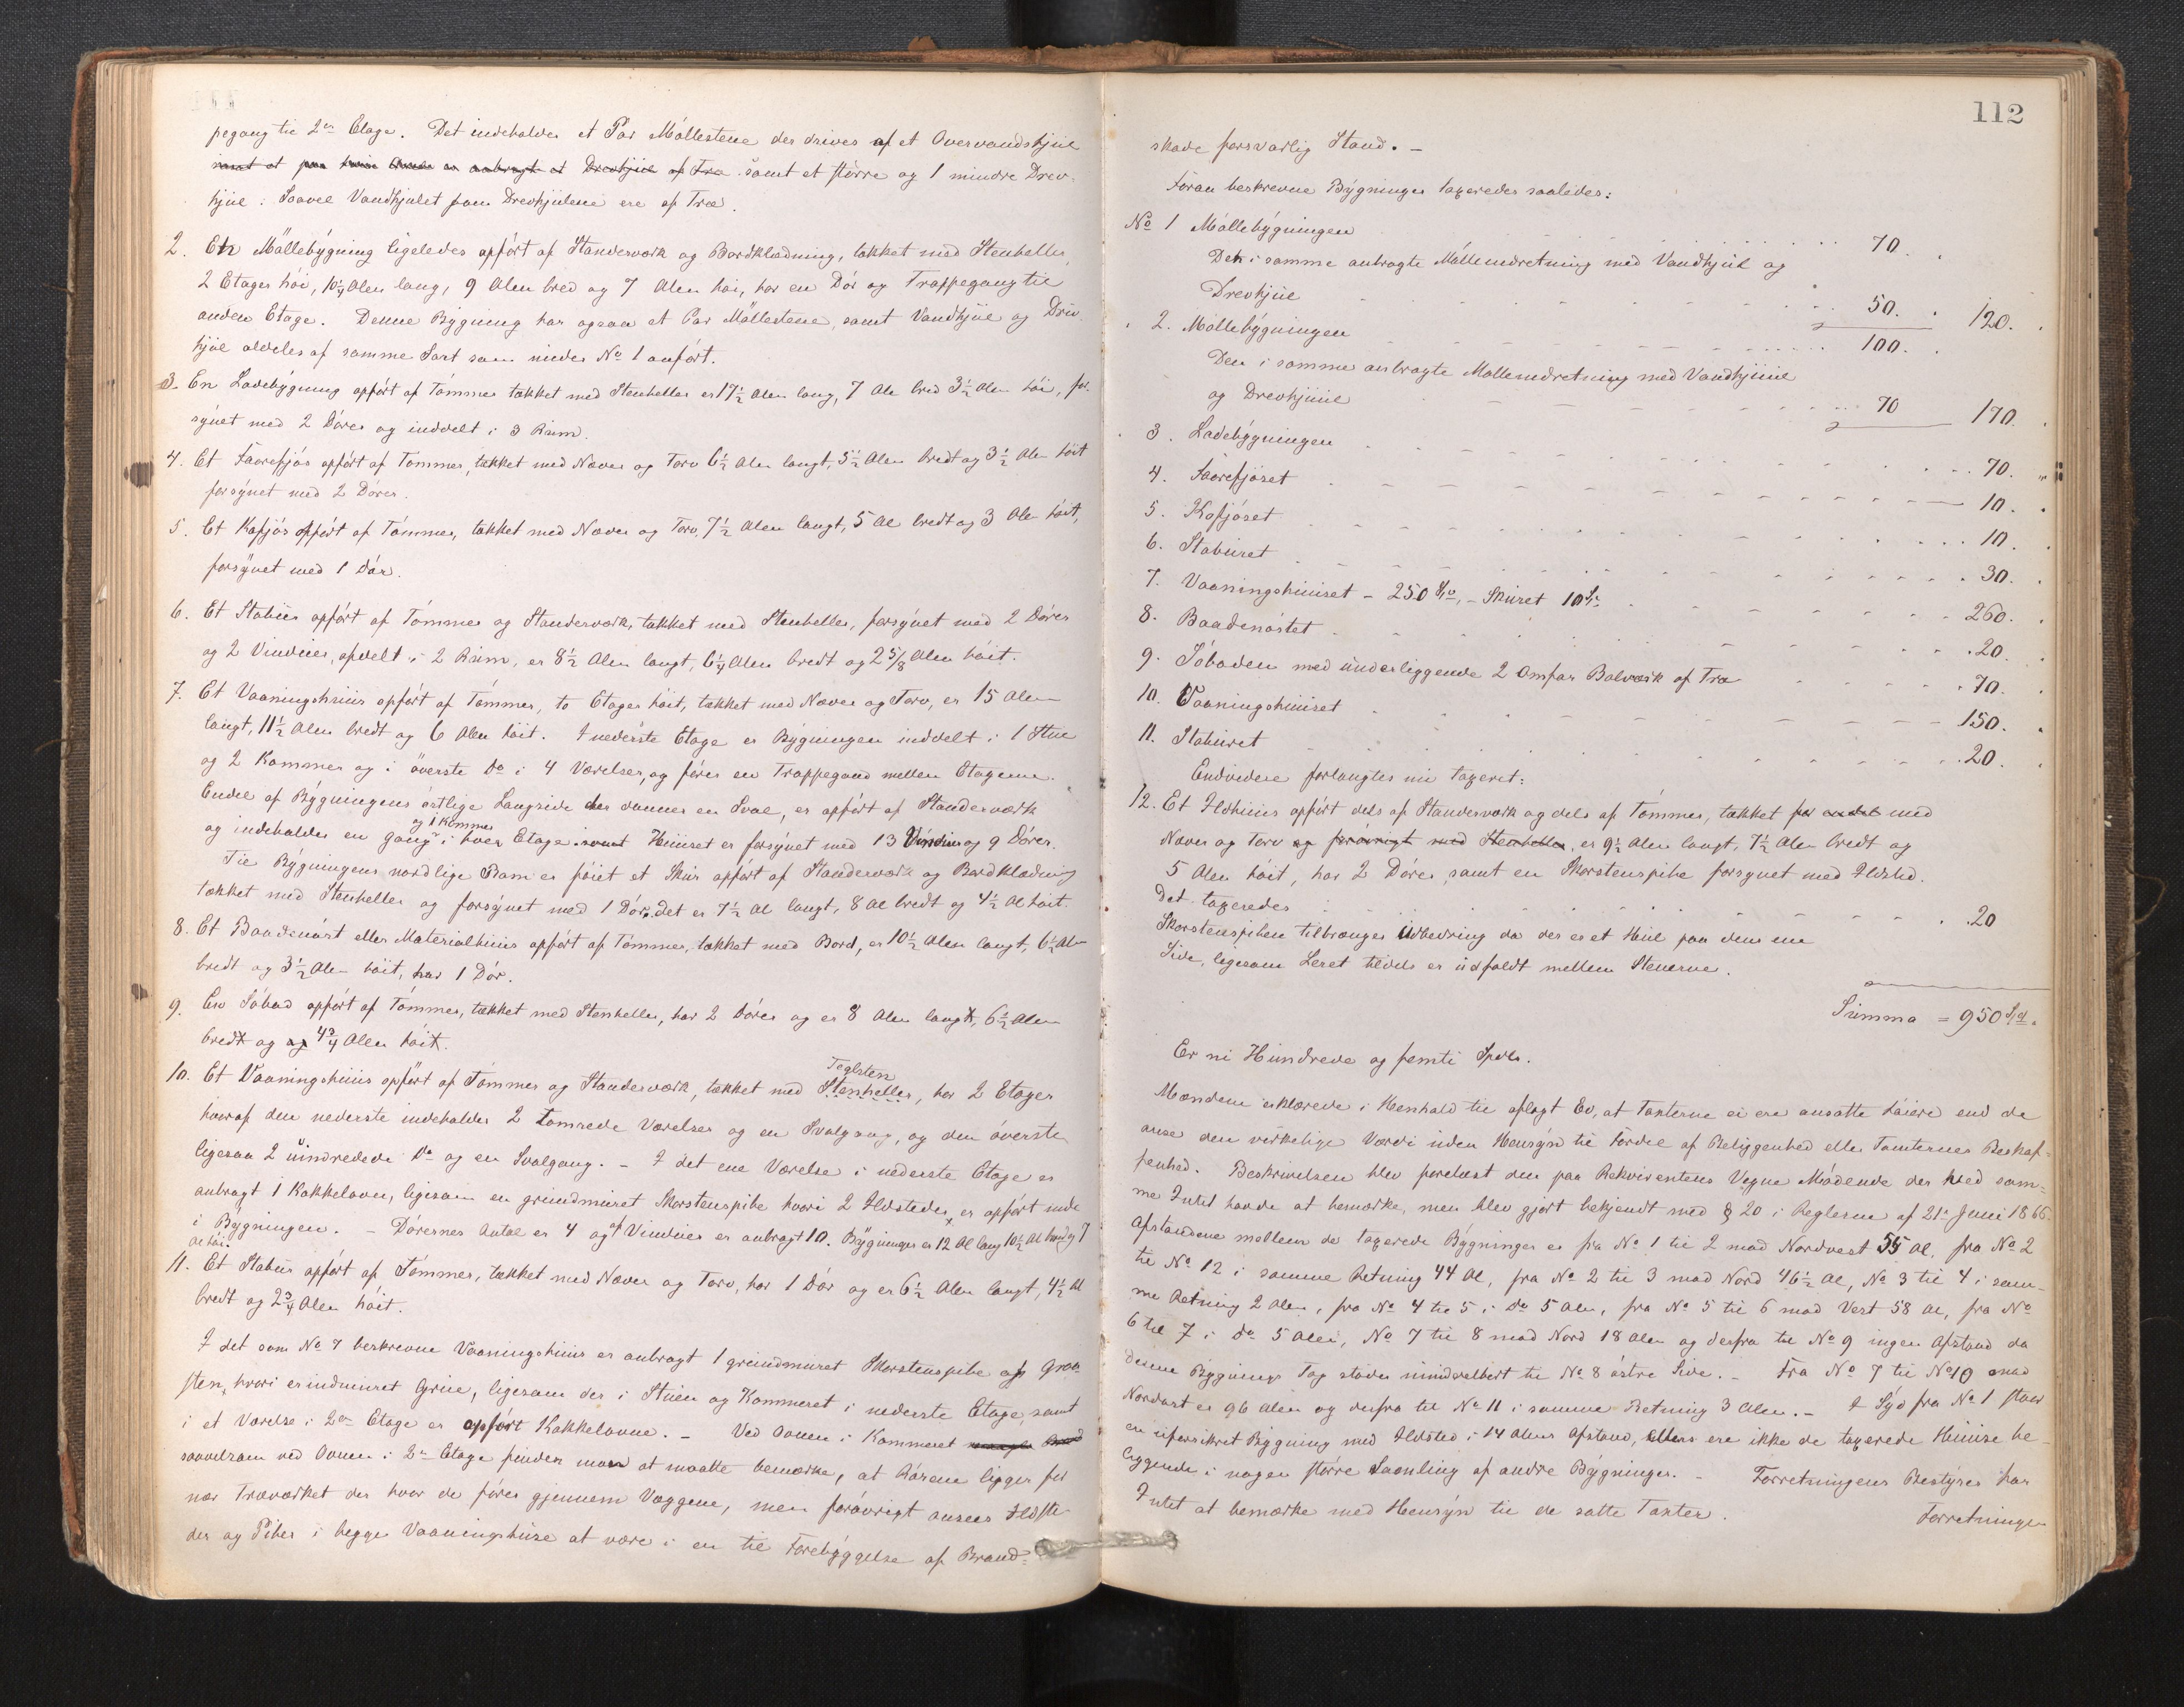 pegang til 2en Etage. Det indeholder et Par Möllestene der drives af et Overvandshjul
samt at paa hvis Ende er anbragt et Drevhjul af Træ samt et större og 1 mindre Drev-
hjul. Saavel Vandhjulet som Drevhjulene ere af Træ.
2. En Möllebygning ligeledes opfört af Standerværk og Bordklædning, tækket med Stenheller,
2 Etager höi, 10¼ Alen lang, 9 Alen bred og 7 Alen höi, har en Dör og Trappegang til
anden Etage. Denne Bygning har ogsaa et Par Möllestene, samt Vandhjul og Driv-
hjul aldeles af samme Sort som under No 1 anfört.
3. En Ladebygning opfört af Tömmer tækket med Stenheller er 17½ Alen lang, 7 Ale bred 3½ Alen höi, for-
synet med 2 Dörer og inddelt i 3 Rum.
4. Et Faarefjös opfört af Tömmer, tækket med Næver og Torv 6½ Alen langt, 5½ Alen bredt og 3½ Alen höit
forsynet med 2 Dörer.
5. Et Kofjös opfört af Tömmer, tækket med Næver og Torv, 7½ Alen langt, 5 Al bredt og 3 Ale höit,
forsynet med 1 Dör.
6. Et Stabur opfört af Tömmer og Standerværk, tækket med Stenheller, forsynet med 2 Dörer
og 2 Vinduer, afdelt i 2 Rum, er 8½ Alen langt, 6¼ Alen bredt og 2 5/8 Alen höit.
7. Et Vaaningshuus opfört af Tömmer, to Etager höit, tækket med Næver og Torv, er 15 Alen
langt, 11½ Alen bredt og 6 Alen höit. I nederste Etage er Bygningen inddelt i 1 Stue
og 2 Kammer og i överste Do i 4 Værelser, og förer en Trappegang mellem Etagerne.
Endel af Bygningens östlige Langside der danner en Sval, er opfört af Standerværk
og 1 Kammer
og indeholder en gang i hver Etage samt Huuset er forsynet med 13 Vinduer og 9 Dörer.
Til Bygningens nordlige Ram er föiet et Skur opfört af Standerværk og Bordklædning
tækket med Stenheller og forsynet med 1 Dör. Det er 7½ Al langt, 8 Al bredt og 4½ Al höit.
8. Et Baadenöst eller Materialhuus opfört af Tömmer, tækket med Bord, er 10½ Alen langt, 6½ Alen
bredt og 3½ Alen höit, har 1 Dör.
9. En Söbod opfört af Tömmer, tækket med Stenheller, har 2 Dörer og er 8 Alen langt, 6½ Alen
bredt og og 4¾ Alen höit.
Teglsten
10. Et Vaaningshuus opfört af Tömmer og Standerværk, tækket med Stenheller, har 2 Etager
hvoraf den nederste indeholder 2 tömrede Værelser og en Svalgang, og den överste
ligesaa 2 uindredede Do og en Svalgang. – I det ene Værelse i nederste Etage er
anbragt 1 Kakkelovn, ligesom en grundmuret Skorstenspibe hvori 2 Ildsteder, er opfört inde
i Bygningen. – Dörernes Antal er 4 og af Vinduer er anbragt 10. Bygningen er 12 Al lang 10½ Al bred og 7
Al höi.
11. Et Stabur opfört af Tömmer, tækket med Næver og Torv, har 1 Dör og er 6½ Alen langt, 4½ Al
bredt og 2¾ Alen höit.
I det som No 7 beskrevne Vaaningshuus er anbragt 1 grundmuret Skorstenspibe af Graa-
sten, hvori er indmuret Grue, ligesom der i Stuen og Kammeret i nederste Etage, samt
i et Værelse i 2en Etage er opfört Kakkelovne. – Ved Ovnen i Kammeret
saavelsom ved Ovnen i 2en Etage finder man at maatte bemærke, at Rörene ligger for
nær Træværket der hvor de förer gjennem Væggene, men forövrigt ansees Ildste-
der og Piber i begge Vaaningshuse at være i en til Forebyggelse af Brand-
112
skade forsvarlig Stand. –
Foran beskrevne Bygninger taxeredes saaledes:
No 1 Möllebygningen 70.
Den i samme anbragte Mölleindretning med Vandhjul og
Drevhjul 50. 120.
2. Möllebygningen 100.
Den i samme anbragte Mölleindretning med Vandhjuul
og Drevhjuul 70 170.
3. Ladebygningen 70.
4. Faarefjöset 10.
5. Kofjöset 10.
6. Staburet 30.
7. Vaaningshuuset – 250 Spd, – Skuret 10 Spd 260.
8. Baadenöstet 20.
9. Söboden med underliggende 2 Omfar Bolværk af Træ 70.
10. Vaaningshuuset 150.
11. Staburet 20.
Endvidere forlangtes nu taxeret:
12. Et Ildhuus opfört dels af Standerværk og dels af Tömmer, tækket for endel med
Næver og Torv og forövrigt med Stenheller, er 9½ Alen langt, 7½ Alen bredt og
5 Alen höit, har 2 Dörer, samt en Skorstenspibe forsynet med Ildsted.
Det taxeredes 20
Skorstenspiben tiltrænger Udbedring da der er et Hul paa dens ene
Side, ligesom Leret tildels er udfaldt mellem Stenerne.
Summa = 950 Spd.
Er ni Hundrede og femti Spdlr.
Mændene erklærede i Henhold til aflagt Ed, at Taxterne ei ere ansatte höiere end de
anse den virkelige Værdi uden Hensyn til Fordel af Beliggenhed eller Tomternes Beskaf-
fenhed. Beskrivelsen blev forelæst den paa Rekvirentens Vegne Mödende der ved sam-
me Intet havde at bemærke, men blev gjort bekjendt med § 20 i Reglerne af 21de Juni 1866.
Afstandene mellem de taxerede Bygninger er fra No 1 til 2 mod Nordvest 55 Al, fra No 2
til No 12 i samme Retning 44 Al, fra No 2 til 3 mod Nord 46½ Al, No 3 til 4 i sam-
me Retning 2 Alen, fra No 4 til 5 i Do 5 Alen, fra No 5 til 6 mod Vest 58 Al, fra No
6 til 7 i Do 5 Alen, No 7 til 8 mod Nord 18 Alen og derfra til No 9 ingen Afstand da
denne Bygnings Tag stöder umiddelbart til No 8 östre Side. – Fra No 7 til No 10 mod
Nordost er 96 Alen og derfra til No 11 i samme Retning 3 Alen. – I Syd fra No 1 staar
en uforsikret Bygning med Ildsted i 14 Alens Afstand, ellers ere ikke de taxerede Huuse be-
liggende i nogen större Samling af andre Bygninger. – Forretningens Bestyrer har
Intet at bemærke med Hensyn til de satte Taxter. Forretningen